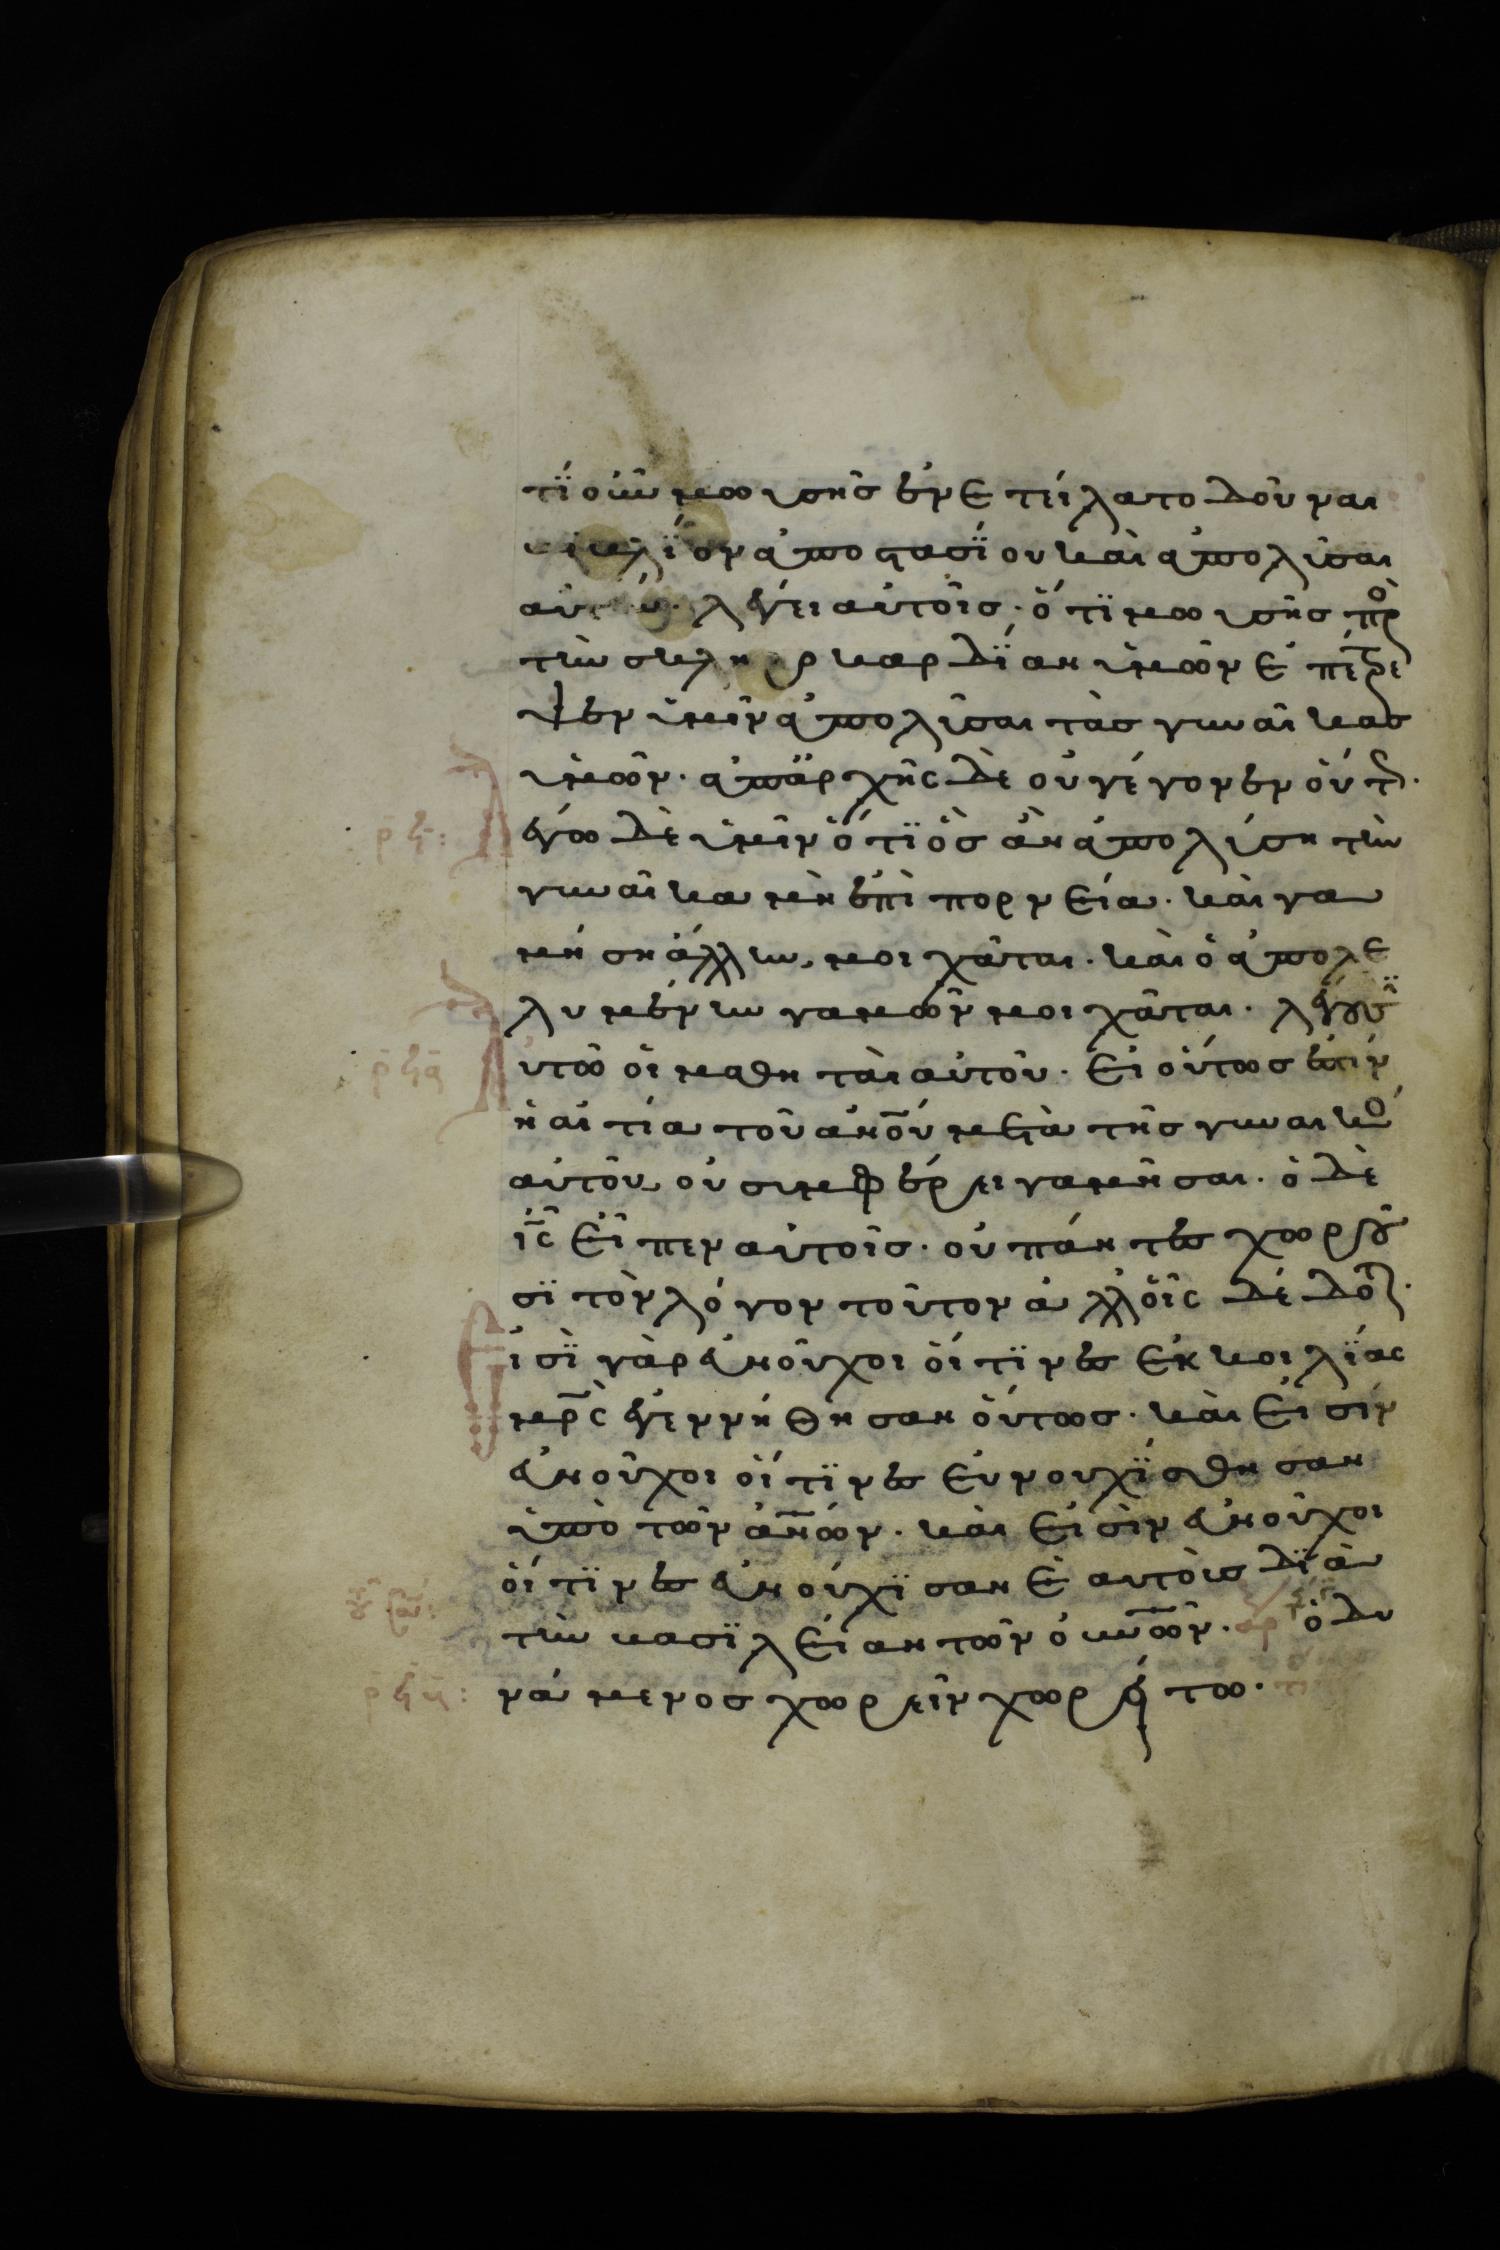 τΐ οὖν μωυσῆσ ἐνετείλατο δοῦναι
βιβλΐον ἀποστασΐου καὶ ἀπολῦσαι
αὐτήν· λέγει αὐτοῖσ· ὅτϊ μωυσῆσ πρὸ
τὴν σκληρ καρδΐαν ὑμῶν ἐπέτρε
ψεν ὑμῖν ἀπολῦσαι τὰσ γυναῖκασ
ὑμῶν· ἀπἀρχῆς δὲ οὐ γέγονεν οὕτ·
λέγω δὲ ὑμῖν ὅτϊ ὃσ ἂν ἀπολύση τὴν
γυναῖκα μὴ ἐπὶ πορνεία· καὶ γα
μήση ἄλλην, μοιχᾶται· καὶ ὁ ἀπολε
λυμένην γαμῶν μοιχᾶται· λέγουσϊ
ὐτῶ οἱ μαθηταὶ αὐτοῦ· εἰ οὕτωσ ἐστὶν
ἡ αἰτία τοῦ ἀνου μετὰ τῆσ γυναικὸ
αὐτοῦ, οὐ συμφέρει γαμῆσαι· ὁ δὲ
ις εἶπεν αὐτοῖσ· οὐ πάντεσ χωροῦ
σϊ τὸν λόγον τοῦτον ἀλλοἷς δέδοτ·
ἰσῒ γὰρ εὐνοῦχοι οἵτϊνεσ ἐκ κοιλΐας
μρς ἐγεννήθησαν οὕτωσ· καὶ εἰσίν
εὐνοῦχοι οἵτϊνεσ εὐνουχΐσθησαν
ὑπὸ τῶν ἀνων· καὶ εἰσὶν εὐνοῦχοι
οἵτϊνεσ εὐνούχϊσαν ἑαυτοὺσ δϊὰ
τὴν βασϊλείαν τῶν οὐνων· αρ ὁ δυ
νάμενοσ χωρεῖν χωρείτω·